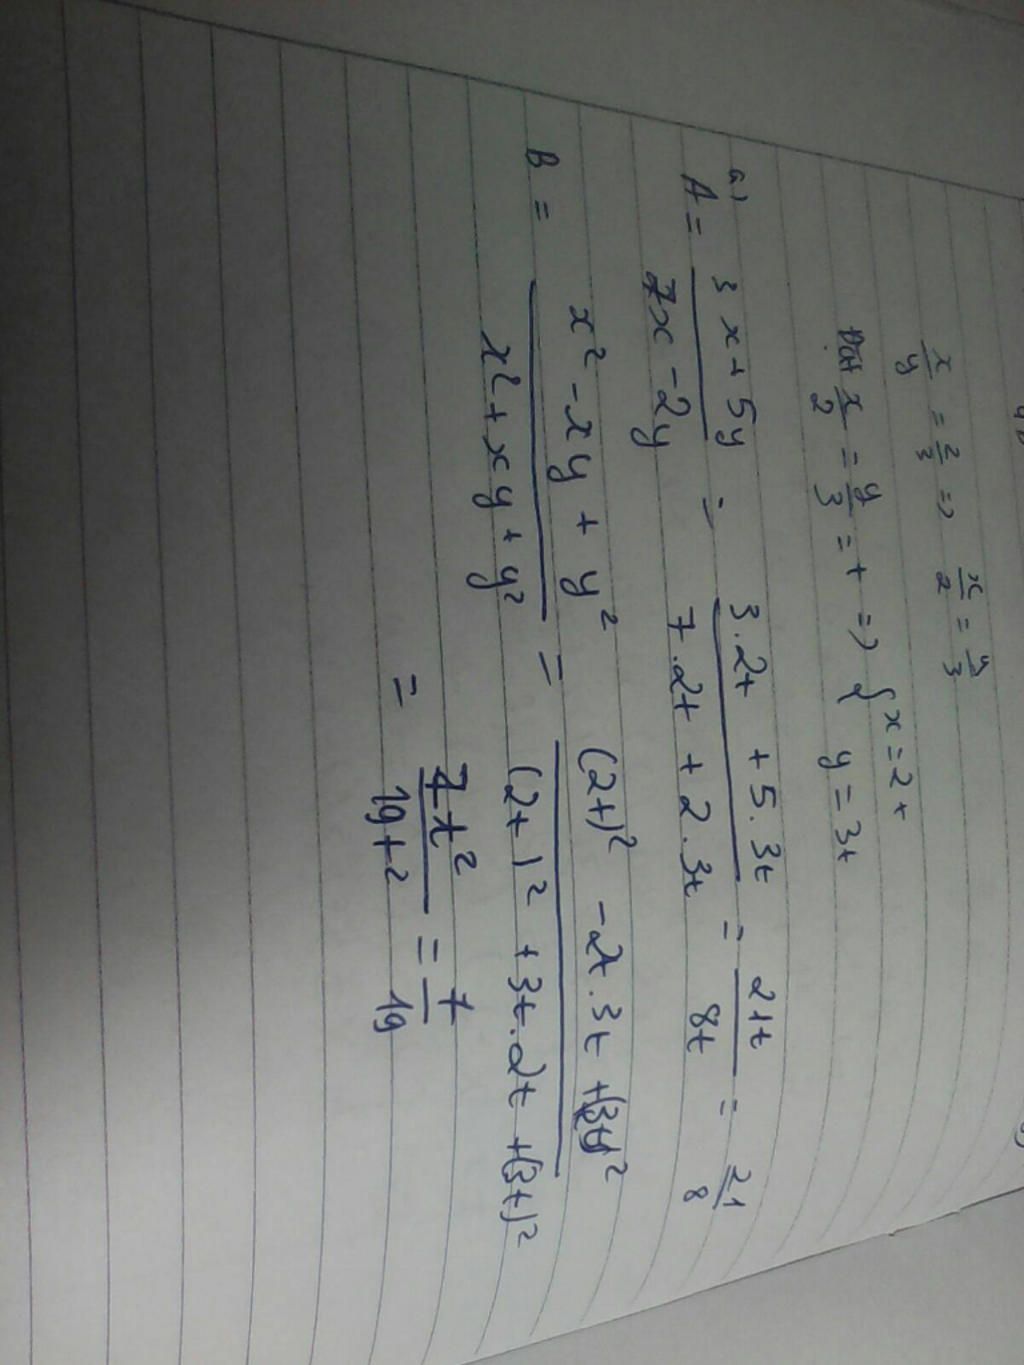 x/y = 2/3 => x/2 = y/3
Đặt x/2 = y/3 = t => { x = 2t
y = 3t
a)
A = (3x + 5y)/(7x - 2y) = (3.2t + 5.3t)/(7.2t + 2.3t) = 21t/8t = 21/8
B = (x² - xy + y²)/(x² + xy + y²) = ((2t)² - 2t.3t + (3t)²)/((2t)² + 3t.2t + (3t)²)
= 7t²/19t² = 7/19